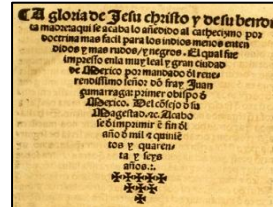 A gloria de Jesu christo y de su bendi
ta madre aqui se acaba lo añedido al cathecismo por
doctrina mas facil para los indios menos enten
didos y mas rudos/ y negros. El qual fue
impresso enla muy leal y gran ciudad
de Mexico por mandado dl reue
rendissimo señor dõ fray Juan
çumarraga: primer obispo d
Mexico. Del cõsejo d su
Magestad. ⁊c. Acabo
se d imprimir ẽ fin dl
año d mil ⁊ quiniẽ
tos y quaren
ta y seys
años.:.